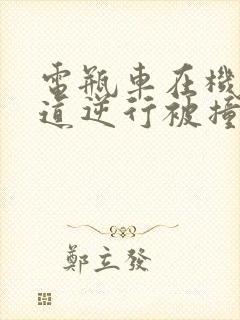 電瓶車在機
道逆行被撞
鄭立發